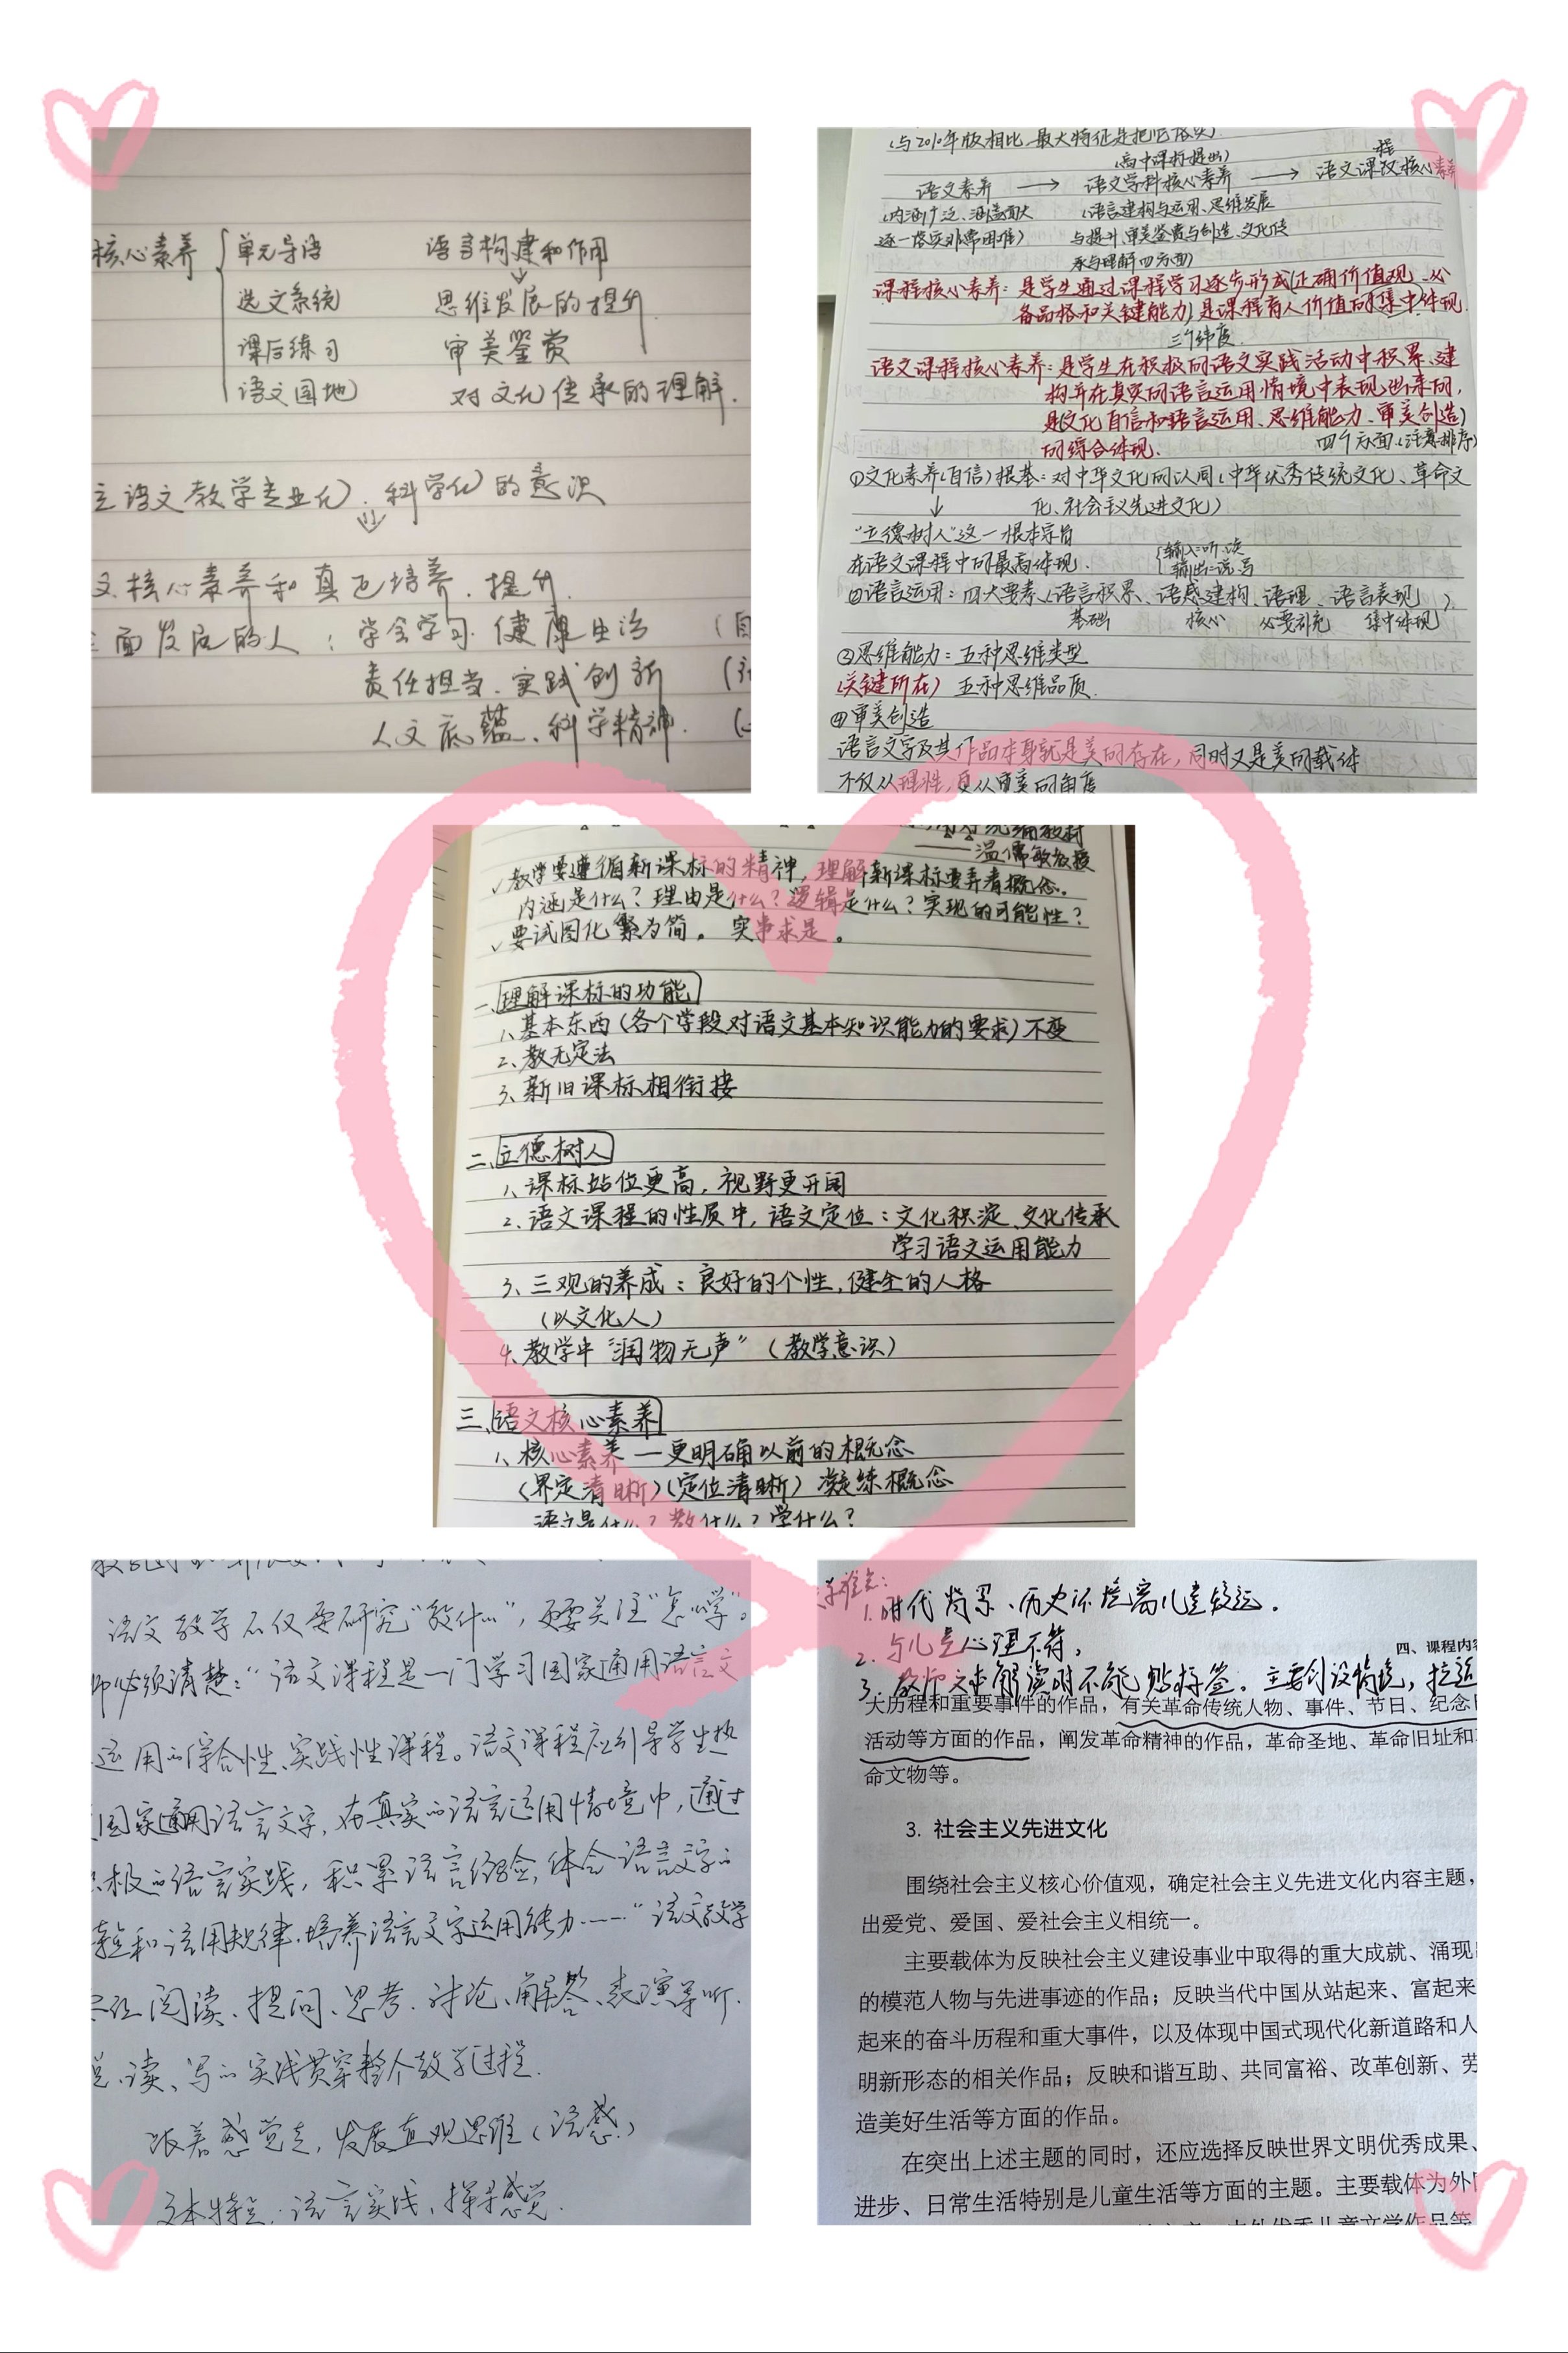 核心素养
单元导语 语言构建和作用
选文系统 思维发展的提升
课后练习 审美鉴赏
语文园地 对文化传承的理解.
语文教学专业化、科学化的意识
核心素养和真正培养、提升.
面发展的人：学会学习 健康生活
责任担当、实践创新
人文底蕴、科学精神.
(与2010年版相比,最大特征是把
(高中课标提出) 程
语文素养 → 语文学科核心素养 → 语文课程核心素养
(内涵广泛、涵盖面大 (语言建构与运用、思维发展
逐一落实非常困难) 与提升、审美鉴赏与创造、文化传
承与理解四方面)
课程核心素养：是学生通过课程学习逐步形成(正确价值观、必
备品格和关键能力)是课程育人价值的集中体现.
三个纬度.
语文课程核心素养：是学生在积极的语文实践活动中积累、建
构并在真实的语言运用情境中表现出来的,
是(文化自信和语言运用、思维能力、审美创造)
的综合体现. 四个方面.(注意排序)
①文化素养(自信)根基：对中华文化的认同(中华优秀传统文化、革命文
↓ 化、社会主义先进文化)
“立德树人”这一根本宗旨
在语文课程中的最高体现. 输入:听、读
输出:说、写
②语言运用：四大要素(语言积累、语感建构、语理、语言表现)
基础 核心 必要补充 集中体现
③思维能力：五种思维类型
(关键所在) 五种思维品质.
④审美创造
语言文字及其作品本身就是美的存在,同时又是美的载体
不仅从理性,更从审美的角度
统编教材
——温儒敏教授
✓教学要遵循新课标的精神,理解新课标要弄清概念.
内涵是什么？理由是什么？逻辑是什么？实现的可能性？
✓要试图化繁为简。实事求是。
一、理解课标的功能
1、基本东西(各个学段对语文基本知识能力的要求)不变
2、教无定法
3、新旧课标相衔接
二、立德树人
1、课标站位更高,视野更开阔
2、语文课程的性质中,语文定位：文化积淀、文化传承
学习语文运用能力
3、三观的养成：良好的个性,健全的人格
(以文化人)
4、教学中“润物无声”(教学意识)
三、语文核心素养
1、核心素养—更明确以前的概念
(界定清晰)(定位清晰) 凝练概念
语文是什么？教什么？学什么？
语文教学不仅要研究“教什么”,更要关注“怎么学”。
师必须清楚：“语文课程是一门学习国家通用语言文
运用的综合性、实践性课程。语文课程应引导学生热
国家通用语言文字,在真实的语言运用情境中,通过
积极的语言实践,积累语言经验,体会语言文字的
特点和运用规律.培养语言文字运用能力……”语文教学
阅读、提问、思考、讨论、解答、表演等听.
说、读、写的实践贯穿整个教学过程.
跟着感觉走,发展直观思维(语感)
文本特点.语言实践、探寻感觉.
1.时代背景、历史环境离儿童较远.
2.与儿童心理不符,
四、课程内容
3.教师文本解读时不能贴标签.主要创设情境,拉近
大历程和重要事件的作品，有关革命传统人物、事件、节日、纪念日
活动等方面的作品，阐发革命精神的作品，革命圣地、革命旧址和
命文物等。
3. 社会主义先进文化
围绕社会主义核心价值观，确定社会主义先进文化内容主题，
出爱党、爱国、爱社会主义相统一。
主要载体为反映社会主义建设事业中取得的重大成就、涌现
的模范人物与先进事迹的作品；反映当代中国从站起来、富起来
起来的奋斗历程和重大事件，以及体现中国式现代化新道路和人
明新形态的相关作品；反映和谐互助、共同富裕、改革创新、劳
造美好生活等方面的作品。
在突出上述主题的同时，还应选择反映世界文明优秀成果、
进步、日常生活特别是儿童生活等方面的主题。主要载体为外